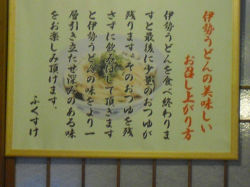 伊勢うどんの美味しい
お召し上がり方
伊勢うどんを食べ終わりま
すと最後に少量のおつゆが
残ります。そのおつゆを残
さずに飲み干して頂きます
と伊勢うどんの味をより一
層引き立たせ深みのある味
をお楽しみ頂けます。
ふくすけ